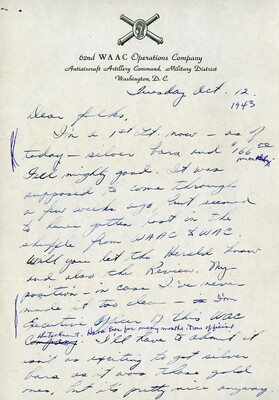 62nd WAAC Operations Company
Antiaircraft Artillery Command, Military District
Washington, D. C.
Tuesday Oct. 12.
1943
Dear folks,
I'm a 1st Lt. now — as of
today — silver bars and $166 66
monthly.
Feel mighty good. It was
supposed to come through
a few weeks ago, but seemed
to have gotten lost in the
shuffle from WAAC to WAC.
Will you let the Herald know
and also the Review. My
position — in case I've never
made it too clear — is I'm
Executive Officer of this WAC
Detachment. Have been for many months now officially
Company. I'll have to admit it
isn't as exciting to get silver
bars as it was those gold
ones, but it's pretty nice anyway.